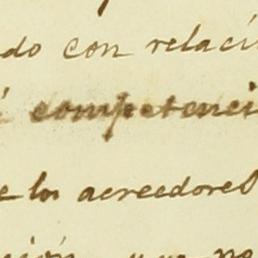 do con relaci
competenci
e los acreedores
ción